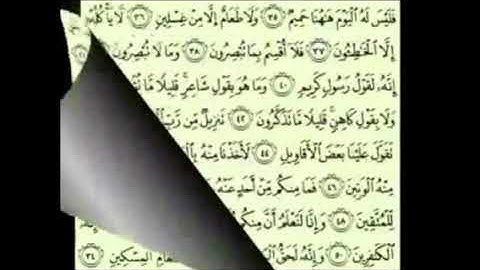 فَلَيْسَ لَهُ ٱلْيَوْمَ هَٰهُنَا حَمِيمٌ ٣٥ وَلَا طَعَامٌ إِلَّا مِنْ غِسْلِينٍ ٣٦ لَّا يَأْكُلُهُۥٓ
إِلَّا ٱلْخَٰطِـُٔونَ ٣٧ فَلَآ أُقْسِمُ بِمَا تُبْصِرُونَ ٣٨ وَمَا لَا تُبْصِرُونَ
إِنَّهُۥ لَقَوْلُ رَسُولٍ كَرِيمٍ ٤٠ وَمَا هُوَ بِقَوْلِ شَاعِرٍ ۚ قَلِيلًا مَّا
وَلَا بِقَوْلِ كَاهِنٍ ۚ قَلِيلًا مَّا تَذَكَّرُونَ ٤٢ تَنزِيلٌ مِّن رَّبِّ
تَقَوَّلَ عَلَيْنَا بَعْضَ ٱلْأَقَاوِيلِ ٤٤ لَأَخَذْنَا مِنْهُ
مِنْهُ ٱلْوَتِينَ ٤٦ فَمَا مِنكُم مِّنْ أَحَدٍ عَنْهُ
لِّلْمُتَّقِينَ ٤٨ وَإِنَّا لَنَعْلَمُ أَنَّ مِنكُم
ٱلْكَٰفِرِينَ ٥٠ وَإِنَّهُۥ لَحَقُّ ٱلْمِسْكِينِ ٣٤